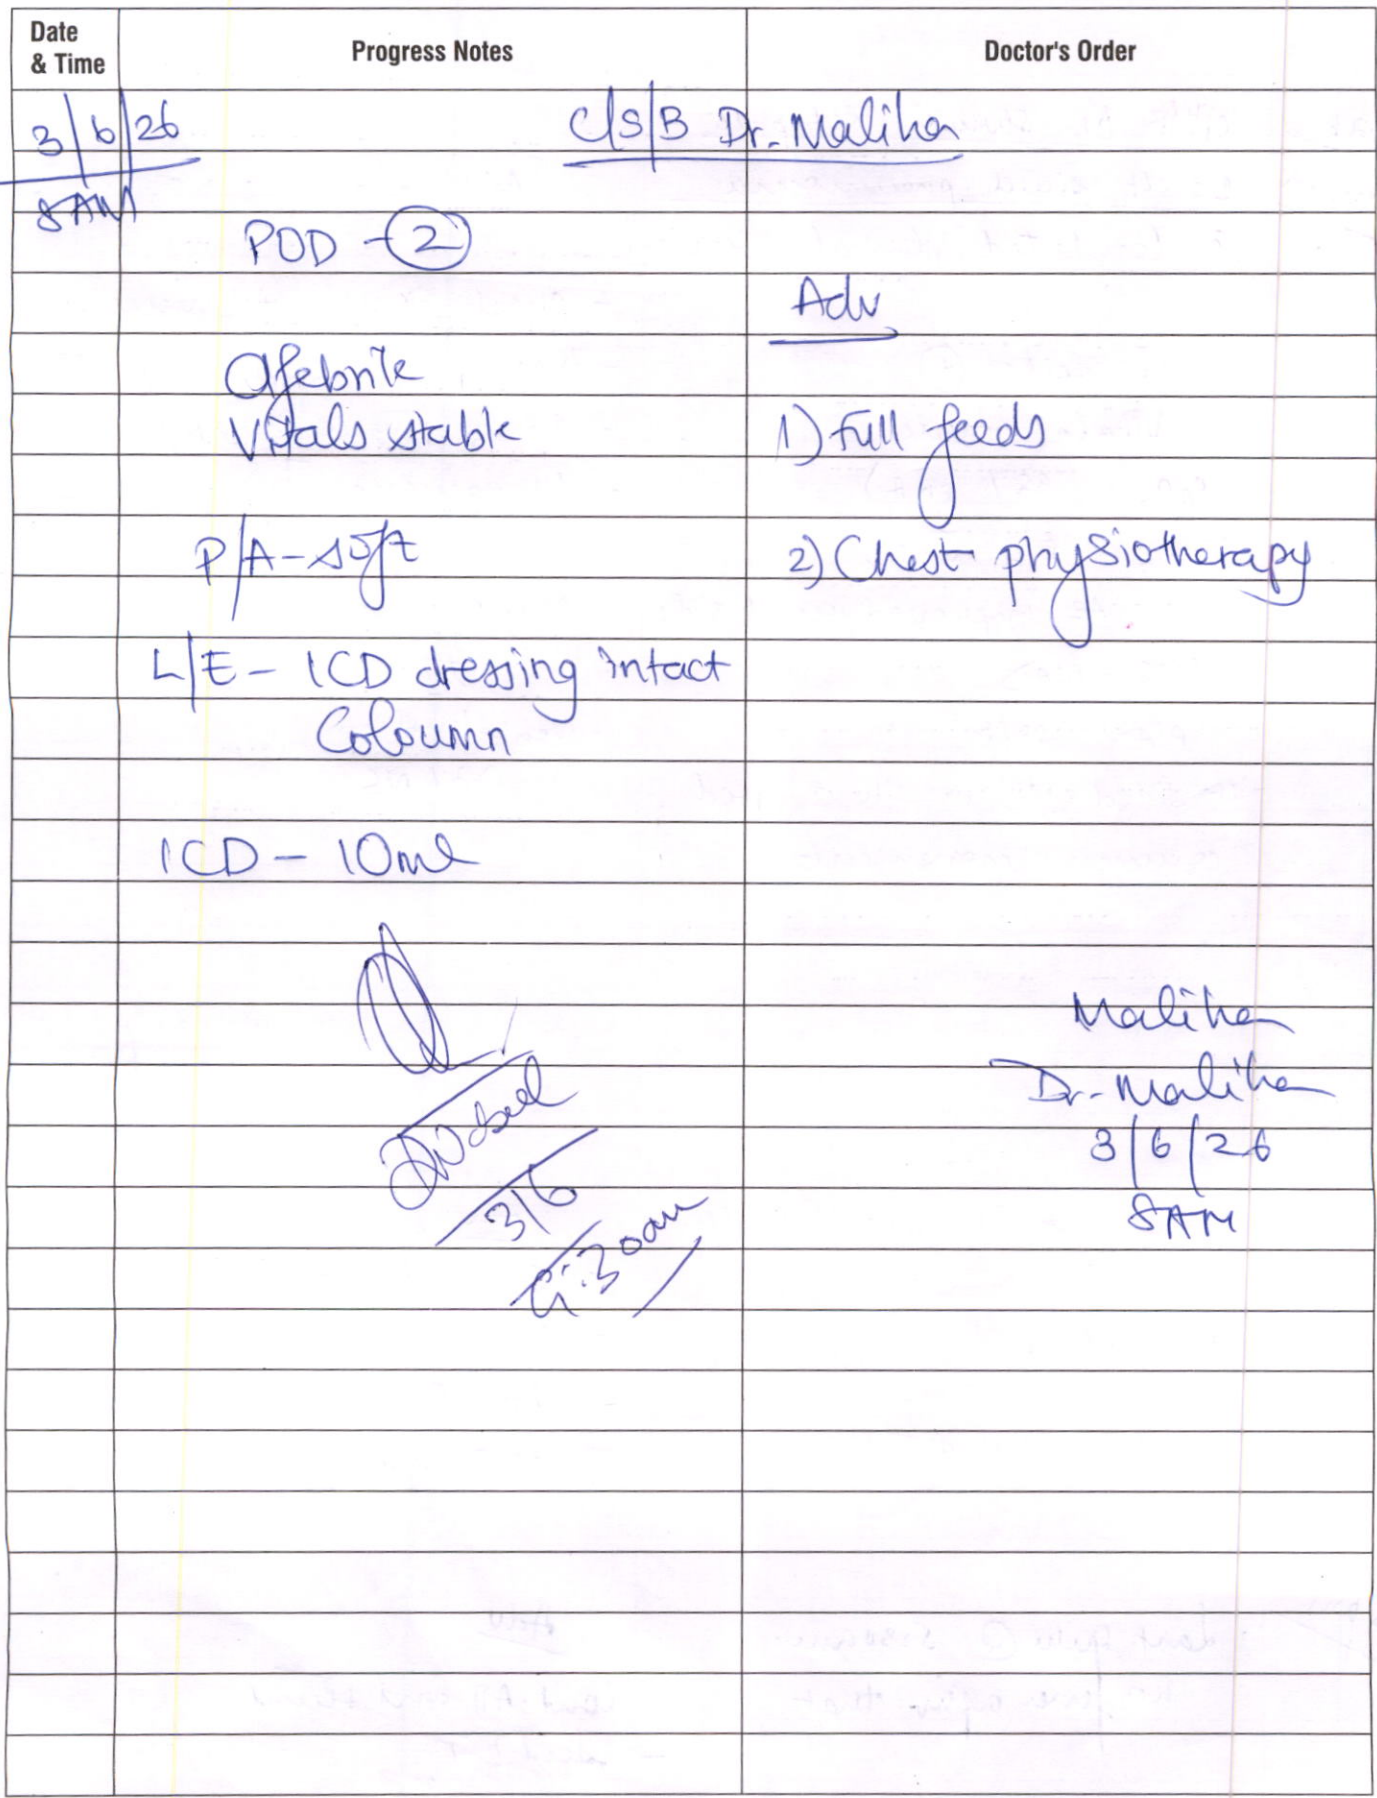 Date & Time
Progress Notes
Doctor's Order
3/6/26
8AM
C/S/B Dr. Maliha
POD - 2
Adv
Afebrile
Vitals stable
1) Full feeds
P/A - soft
2) Chest physiotherapy
L/E - ICD dressing intact
Coloumn
ICD - 10ml
Maliha
Dr. Maliha
3/6/26
8AM
3/6